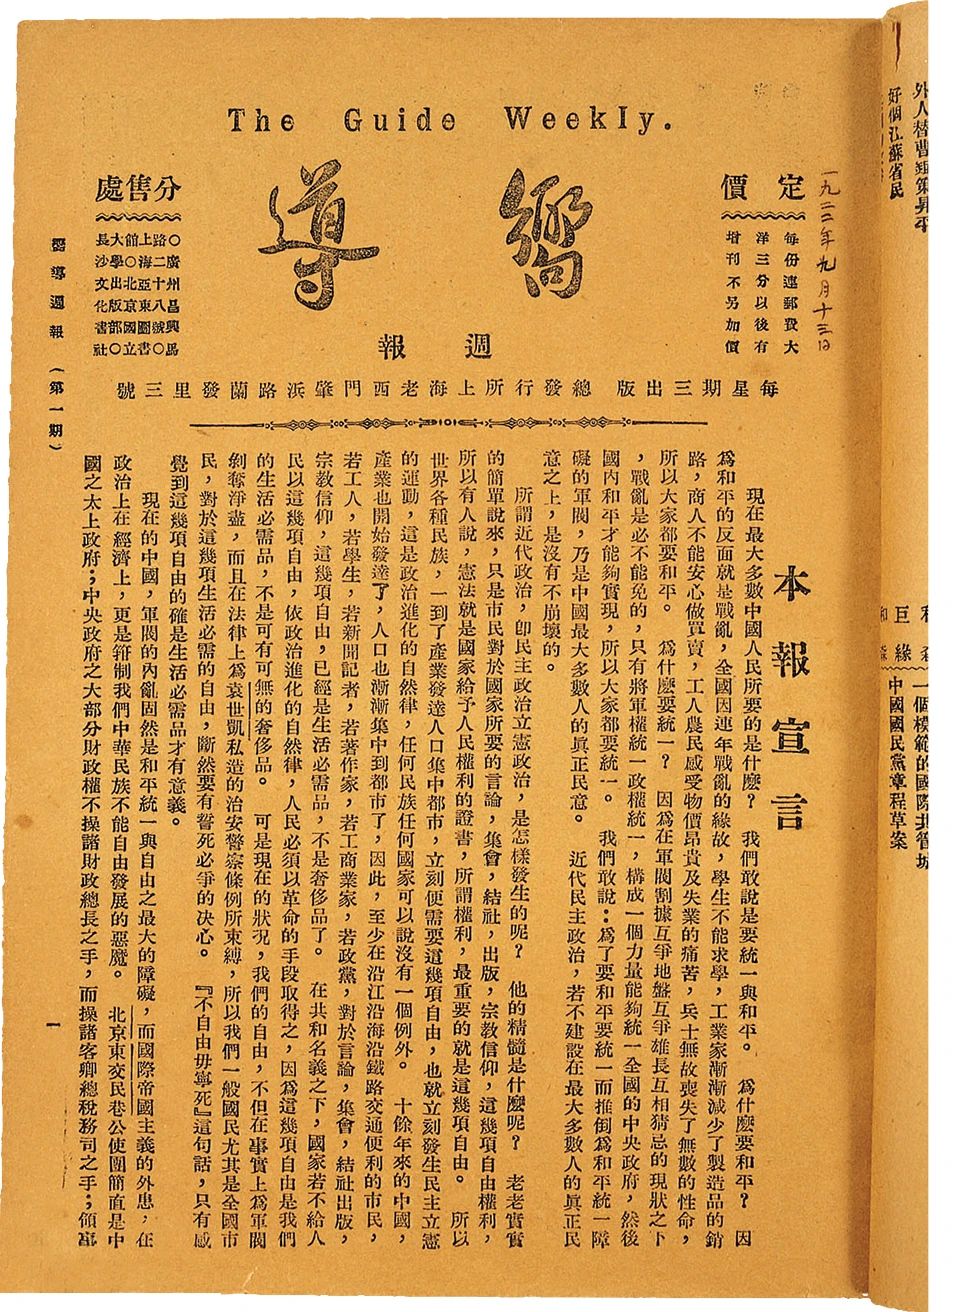 The Guide Weekly.
嚮導
週報
定價
每份連郵費大
洋三分以後有
增刊不另加價
一九二二年九月十三日
分售處
○廣州昌興馬
路二十八號○
上海亞東圖書
館○北京國立
大學出版部○
長沙文化書社
每星期三出版 總發行所上海老西門肇浜路蘭發里三號
嚮導週報 (第一期)
一
本報宣言
現在最大多數中國人民所要的是什麼? 我們敢說是要統一與和平。 爲什麼要和平? 因
爲和平的反面就是戰亂,全國因連年戰亂的緣故,學生不能求學,工業家漸漸減少了製造品的銷
路,商人不能安心做買賣,工人農民感受物價昂貴及失業的痛苦,兵士無故喪失了無數的性命,
所以大家都要和平。 爲什麼要統一? 因爲在軍閥割據互爭地盤互爭雄長互相猜忌的現狀之下
,戰亂是必不能免的,只有將軍權統一政權統一,構成一個力量能夠統一全國的中央政府,然後
國內和平才能夠實現,所以大家都要統一。 我們敢說:爲了要和平要統一而推倒爲和平統一障
礙的軍閥,乃是中國最大多數人的眞正民意。 近代民主政治,若不建設在最大多數人的眞正民
意之上,是沒有不崩壞的。
所謂近代政治,卽民主政治立憲政治,是怎樣發生的呢? 他的精髓是什麼呢? 老老實實
的簡單說來,只是市民對於國家所要的言論,集會,結社,出版,宗教信仰,這幾項自由權利,
所以有人說,憲法就是國家給予人民權利的證書,所謂權利,最重要的就是這幾項自由。 所以
世界各種民族,一到了產業發達人口集中都市,立刻便需要這幾項自由,也就立刻發生民主立憲
的運動,這是政治進化的自然律,任何民族任何國家可以說沒有一個例外。 十餘年來的中國,
產業也開始發達了,人口也漸漸集中到都市了,因此,至少在沿江沿海沿鐵路交通便利的市民,
若工人,若學生,若新聞記者,若著作家,若工商業家,若政黨,對於言論,集會,結社出版,
宗教信仰,這幾項自由,已經是生活必需品,不是奢侈品了。 在共和名義之下,國家若不給人
民以這幾項自由,依政治進化的自然律,人民必須以革命的手段取得之,因爲這幾項自由是我們
的生活必需品,不是可有可無的奢侈品。 可是現在的狀况,我們的自由,不但在事實上爲軍閥
剝奪淨盡,而且在法律上爲袁世凱私造的治安警察條例所束縛,所以我們一般國民尤其是全國市
民,對於這幾項生活必需的自由,斷然要有誓死必爭的決心。 『不自由毋寧死』這句話,只有感
覺到這幾項自由的確是生活必需品才有意義。
現在的中國,軍閥的內亂固然是和平統一與自由之最大的障礙,而國際帝國主義的外患,在
政治上在經濟上,更是箝制我們中華民族不能自由發展的惡魔。 北京東交民巷公使團簡直是中
國之太上政府;中央政府之大部分財政權不操諸財政總長之手,而操諸客卿總稅務司之手;領事
好個江蘇省民
一個模範的國際共管城
中國國民黨章程草案